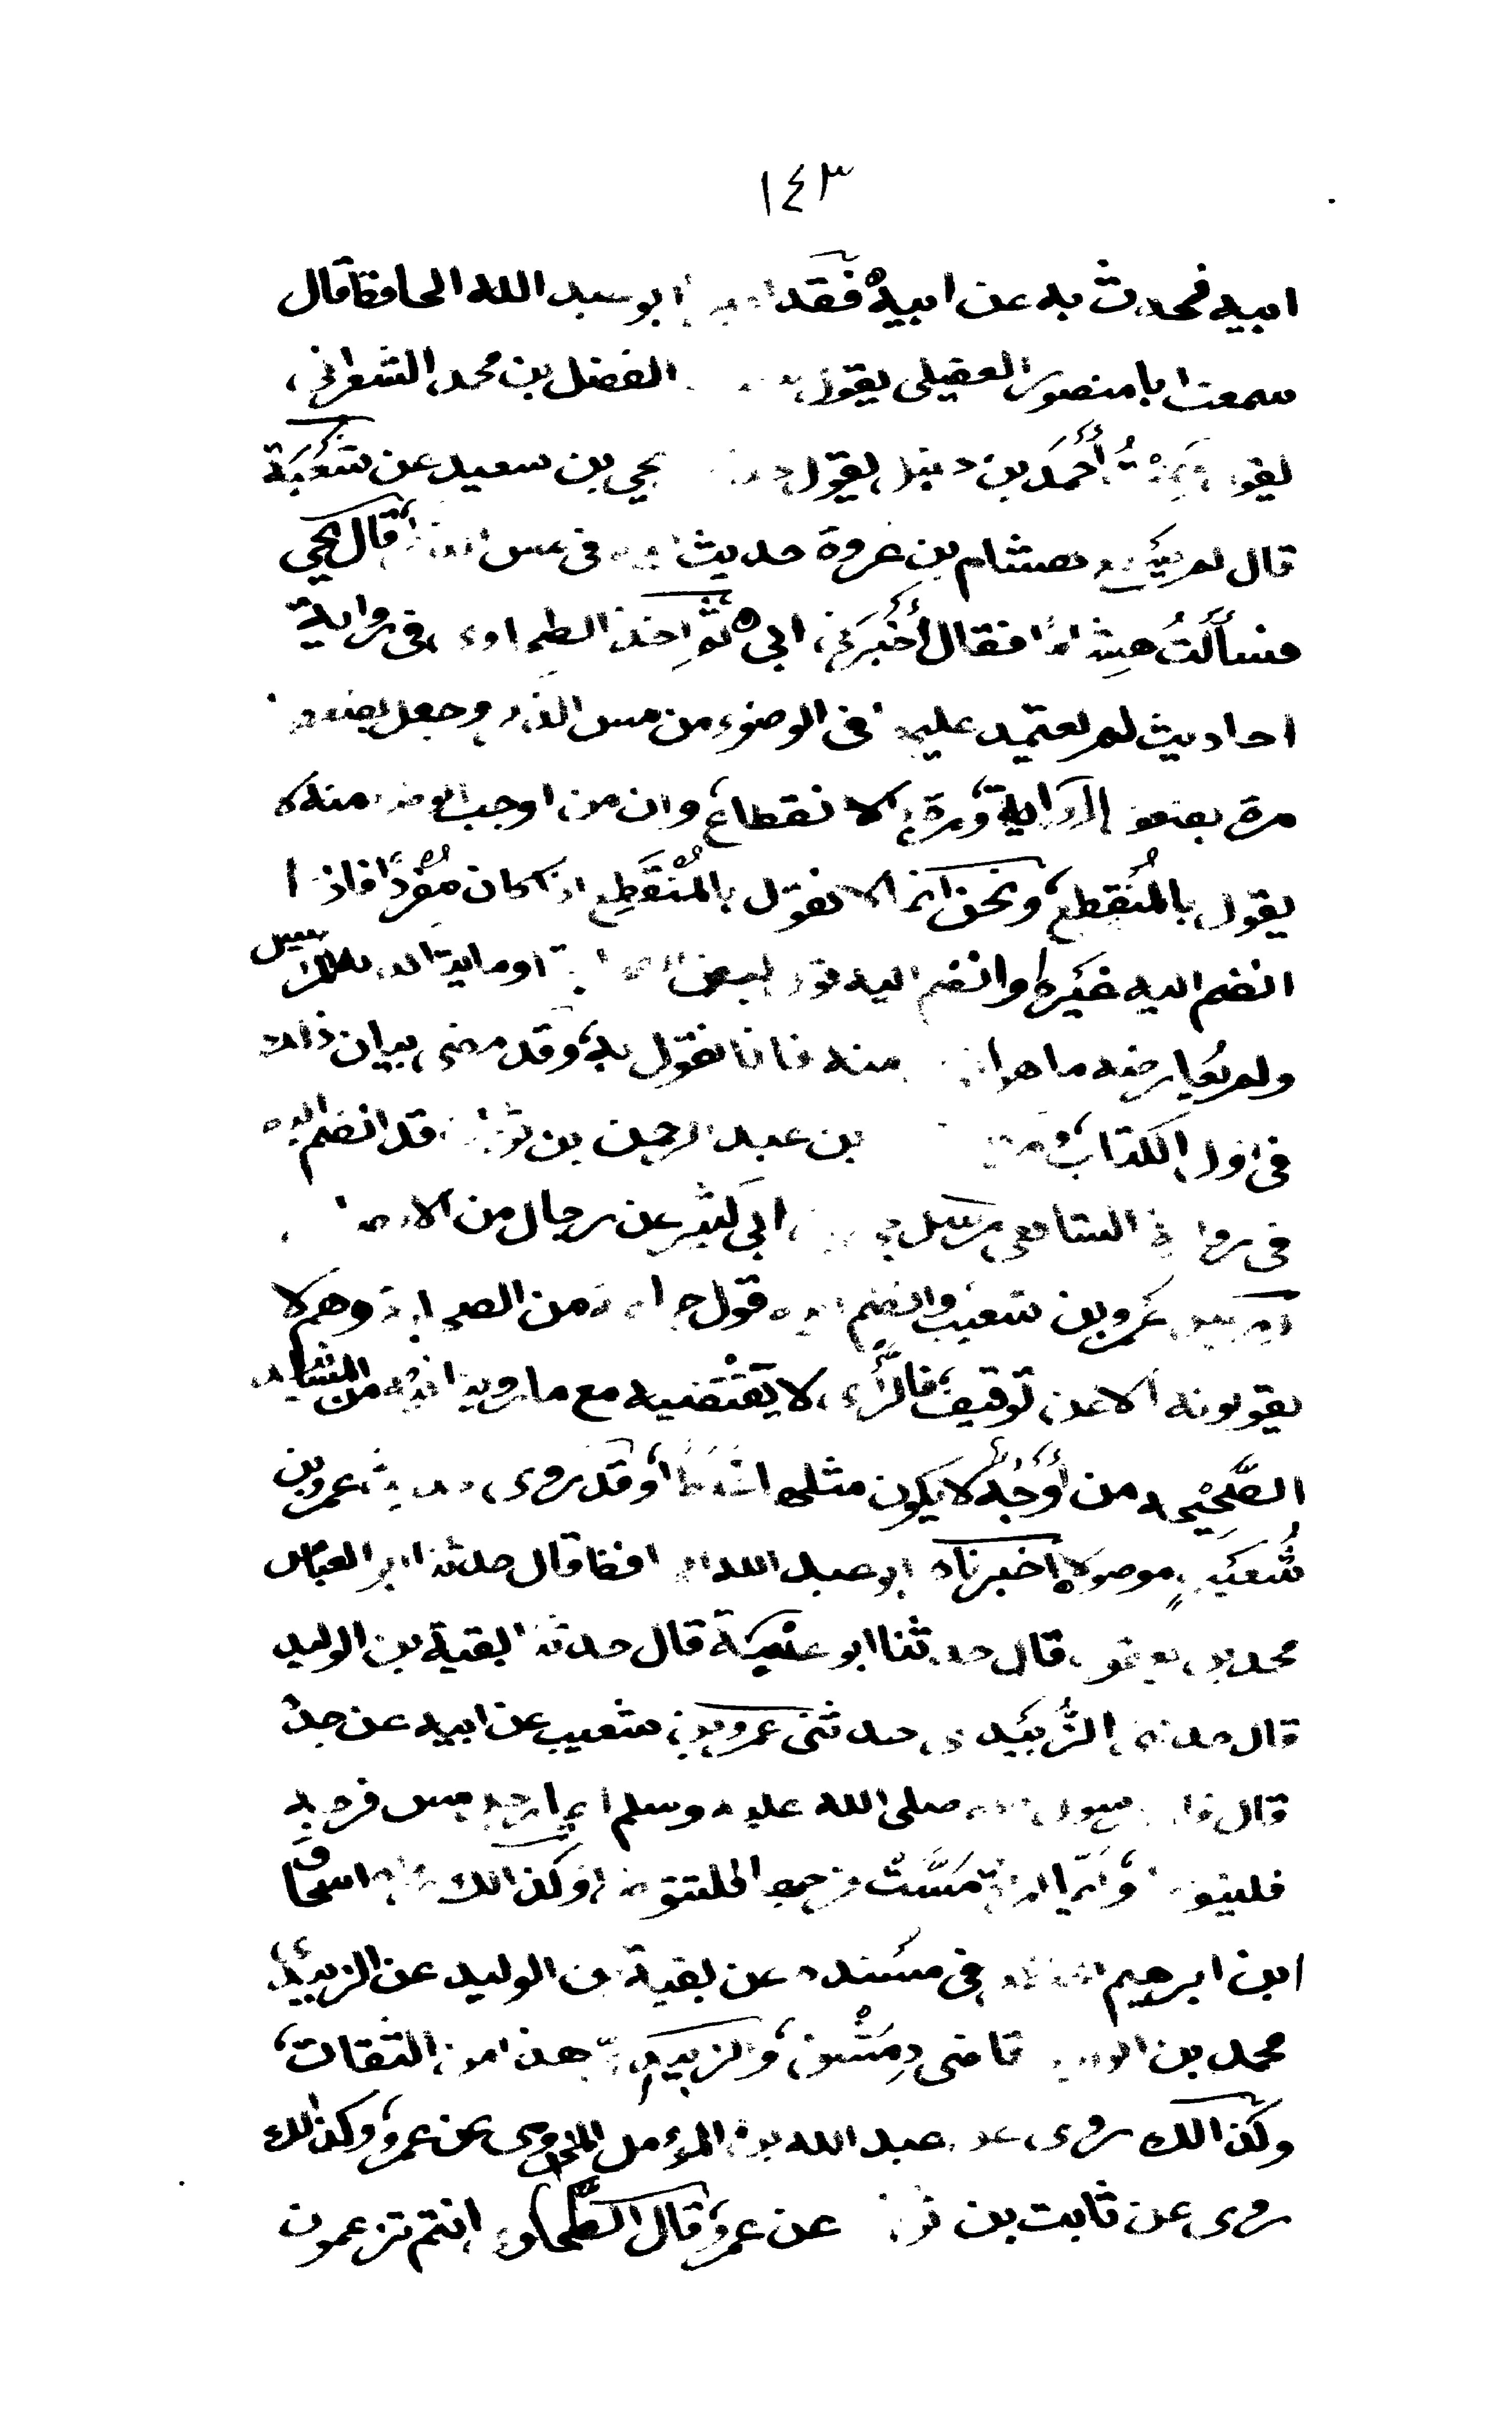 ١٤٣
ابيه فحدث به عن ابيه فقد ابو عبد الله الحافظ قال
سمعت ابا منصور العقيلي يقول الفضل بن محمد الشعراني
يقول أحمد بن حنبل يقول يحي بن سعيد عن شعبة
قال لم هشام بن عروة حديث في مس قال يحي
فسألت هشاما فقال أخبرني ابي ثم اخذ الطحاوي في رواية
احاديث لم يعتمد عليها في الوضوء من مس الذكر وجعل يضعف
مرة بضعف الرواية ومرة بالانقطاع وان من اوجب الوضوء منه لا
يقول بالمنقطع ونحن انما لا نقول بالمنقطع اذا كان مفردا فاذا
انضم اليه غيره او انضم اليه قول بعض الصحابة او ما يتاكد به المراسيل
ولم يعارضه ما هو منه فانا نقول به وقد مضى بيان ذلك
في اول الكتاب بن عبد الرحمن بن ثوبان قد انضم اليه
في رواية الشافعي مرسل ابي كثير عن رجال من الانصار
عمرو بن شعيب وانضم اليه قول جماعة من الصحابة وهم لا
يقولونه الا عن توقيف فالرأي لا يقتضيه مع ما روينا فيه من المسانيد
الصحيحة من أوجه لا يكون مثلها غلطا وقد روى حديث عمرو بن
شعيب موصولا اخبرناه ابو عبد الله الحافظ قال حدثنا ابو العباس
محمد بن يعقوب قال حدثنا ابو عتبة قال حدثنا بقية بن الوليد
قال حدثني الزبيدي حدثني عمرو بن شعيب عن ابيه عن جده
قال قال رسول الله صلى الله عليه وسلم ايما رجل مس فرجه
فليتوضأ وايما امرأة مست فرجها فلتتوضأ وكذالك رواه اسحاق
ابن ابرهيم الحنظلي في مسنده عن بقية بن الوليد عن الزبيدي
محمد بن الوليد قاضي دمشق والزبيدي هذا من الثقات
وكذالك روى عن عبد الله بن المؤمل المخزومي عن عمرو وكذالك
روى عن ثابت بن ثوبان عن عمرو قال الطحاوي انتم تزعمون